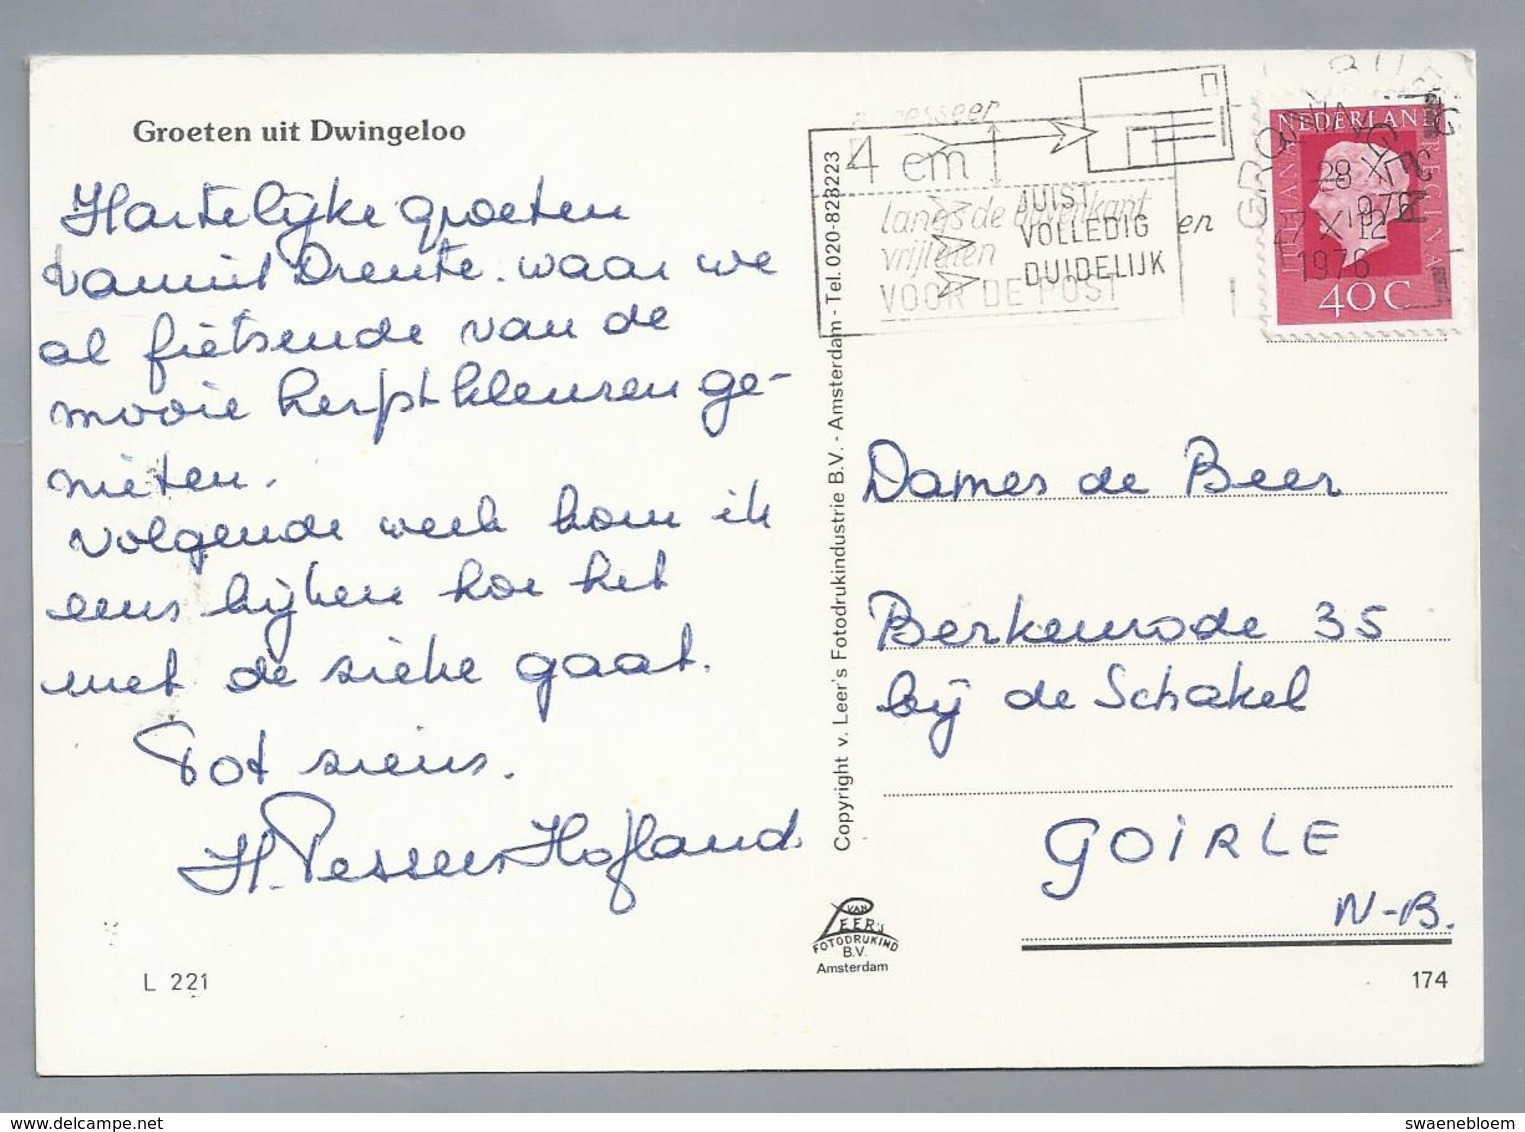 Groeten uit Dwingeloo
Hartelijke groeten
vanuit Drente. waar we
al fietsende van de
mooie herfstkleuren ge-
nieten.
volgende week kom ik
eens kijken hoe het
met de zieke gaat.
Tot ziens.
H. Pessers Hofland.
L 221
Copyright v. Leer's Fotodrukindustrie B.V. - Amsterdam - Tel. 020-828223
adresseer
4 cm
langs de bovenkant
vrijlaten
VOOR DE POST
JUIST
VOLLEDIG
DUIDELIJK
en
GRONINGEN
28 XI
1976
17 X 12
1976
NEDERLAND
JULIANA REGINA
40 C
Dames de Beer
Berkenrode 35
bij de Schakel
GOIRLE
N-B.
VAN
LEER'S
FOTODRUKIND
B.V.
Amsterdam
174
delcampe.net
swaenebloem